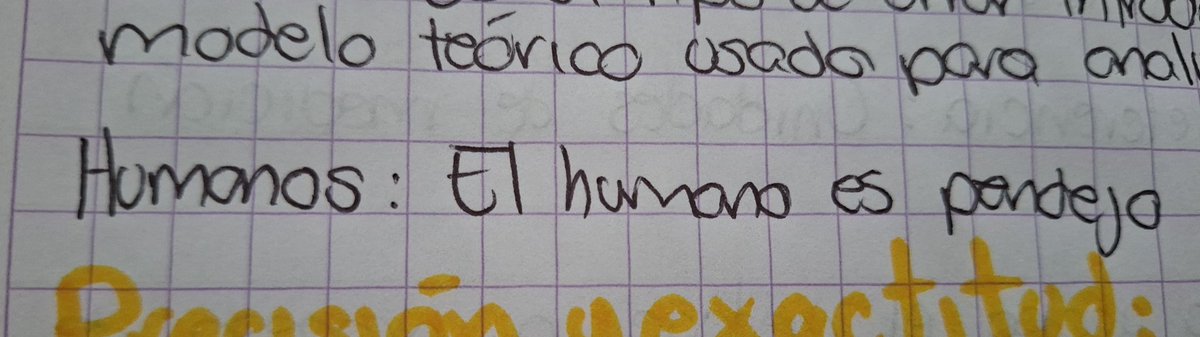 modelo teórico usado para anali
Humanos: El humano es pendejo
Precisión y exactitud: